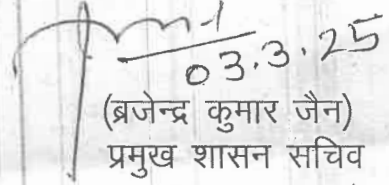 03.3.25
(ब्रजेन्द्र कुमार जैन)
प्रमुख शासन सचिव